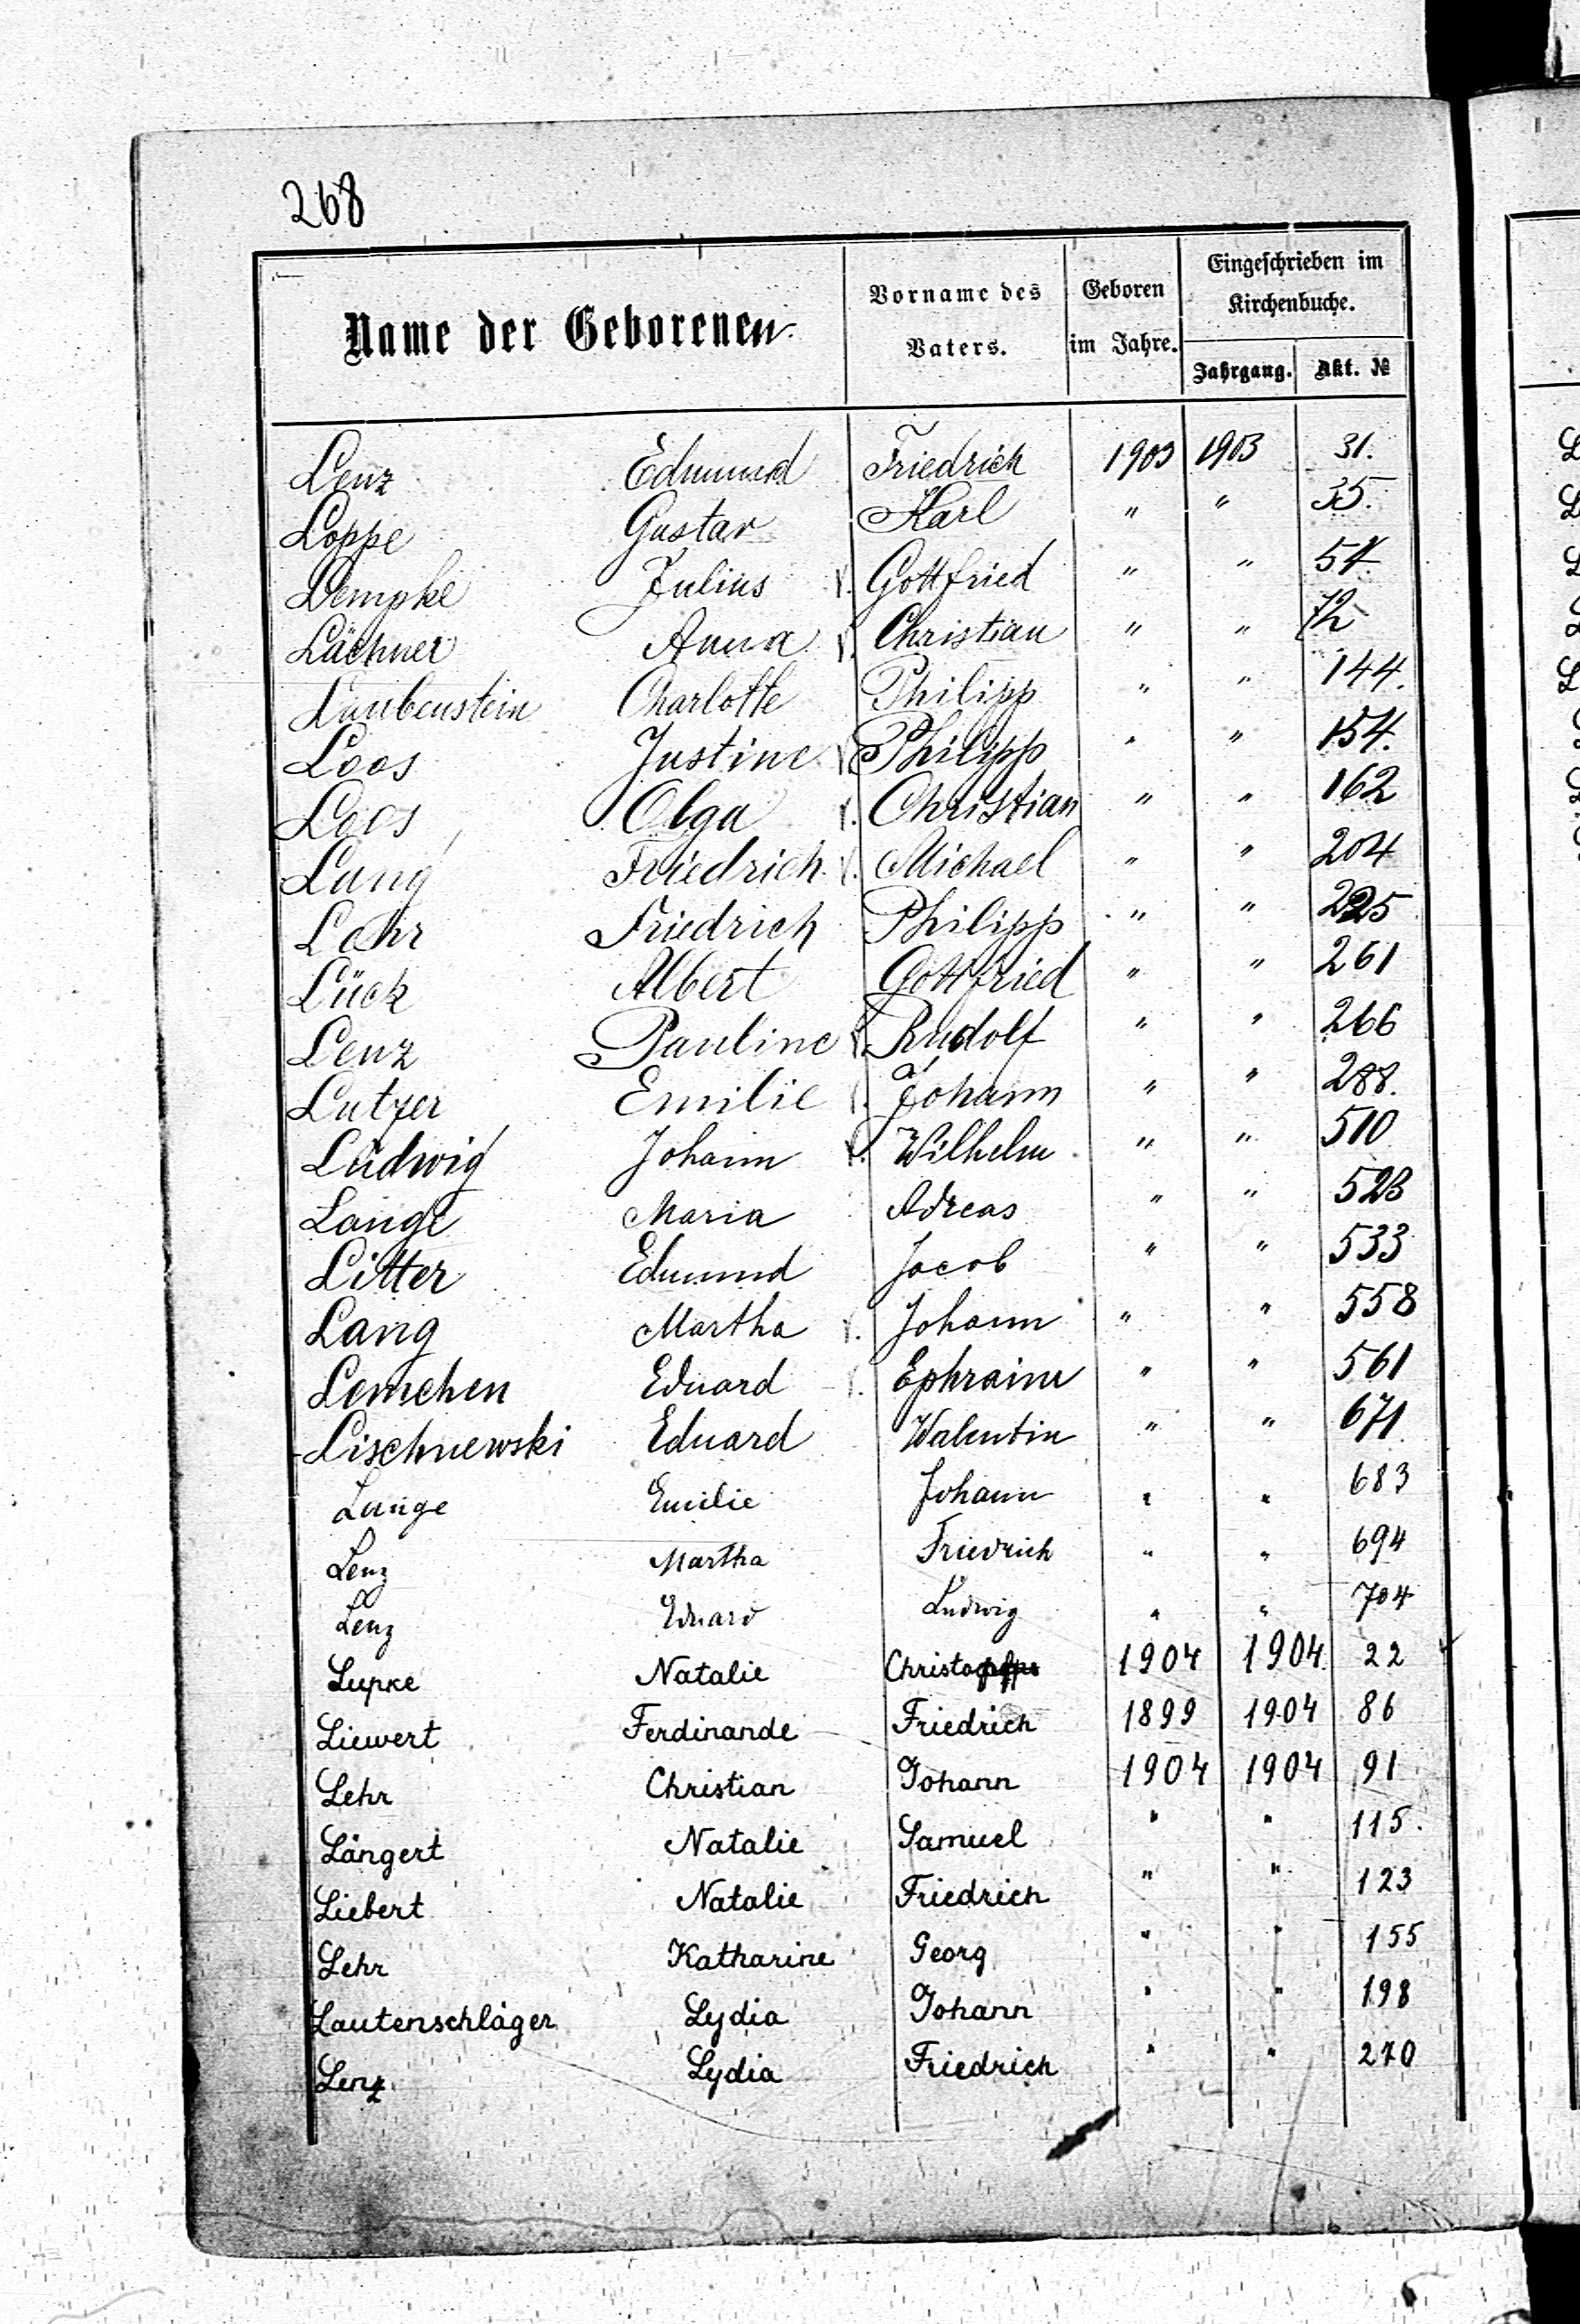 268
Name der Geborenen
Vorname des Vaters.
Geboren im Jahre.
Eingeschrieben im Kirchenbuche.
Jahrgang. Akt. №
Lenz Edmund Friedrich 1903 1903 31.
Loppe Gustav Karl " " 35.
Lempke Julius Gottfried " " 54
Lächner Anna Christian " " 72
Laubenstein Charlotte Philipp " " 144.
Loos Justine Philipp " " 154.
Loos Olga Christian " " 162
Lang Friedrich Michael " " 204
Lehr Friedrich Philipp " " 225
Lück Albert Gottfried " " 261
Lenz Pauline Rudolf " " 266
Lutzer Emilie Johann " " 288.
Ludwig Johann Wilhelm " " 510
Lange Maria Adreas " " 523
Litter Edmund Jacob " " 533
Lang Martha Johann " " 558
Lemchen Eduard Ephraim " " 561
Lischnewski Eduard Walentin " " 671
Lange Emilie Johann " " 683
Lenz Martha Friedrich " " 694
Lenz Eduard Ludwig " " 704
Lupke Natalie 1904 1904 22
Liewert Ferdinande Friedrich 1899 1904 86
Lehr Christian Johann 1904 1904 91
Längert Natalie Samuel " " 115.
Liebert Natalie Friedrich " " 123
Lehr Katharine Georg " " 155
Lautenschläger Lydia Johann " " 198
Lenz Lydia Friedrich " " 270